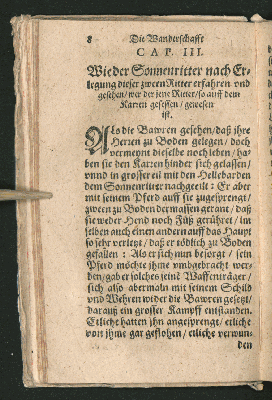 8 Die Wanderschafft
CAP. III.
Wie der Sonnenritter nach Er-
legung dieser zween Ritter erfahren vnd
gesehen / wer der jene Ritter / so auff dem
Karren gesessen / gewesen
ist.
Also die Bawren gesehen / daß jhre
Herren zu Boden gelegen / doch
vermeynt dieselbe noch leben / ha-
ben sie den Karren hinder sich gelassen /
vnnd in grosser eil mit den Hellebarden
dem Sonnenritter nachgeeilt : Er aber
mit seinem Pferd auff sie zugesprengt /
zween zu Boden dermassen gerant / daß
sie weder Hend noch Füß gerühret / im
selben auch einen andern auff das Haupt
so sehr verletzt / daß er tödlich zu Boden
gefallen : Als er sich nun besorgt / sein
Pferd möchte jhme vmbgebracht wer-
den / gab er solches seine Waffenträger /
sich also abermals mit seinem Schild
vnd Wehren wider die Bawren gesetzt /
darauß ein grosser Kampff entstanden.
Etliche hatten jhn angesprengt / etliche
von jhme gar geflohen / etliche verwun-
den